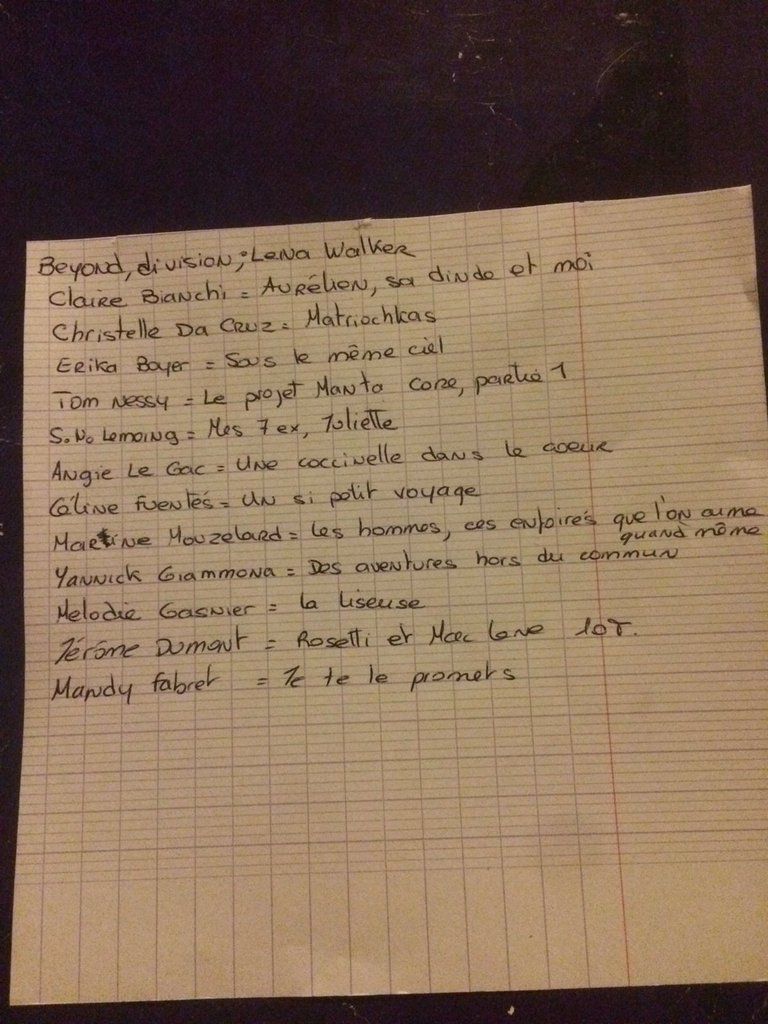 Beyond, division, Lena Walker
Claire Bianchi = Aurélien, sa dinde et moi
Christelle Da Cruz = Matriochkas
Erika Boyer = Sous le même ciel
Tom Nessy = Le projet Manta Core, partie 1
S.N. Lemoing = Mes 7 ex, Juliette
Angie Le Gac = Une coccinelle dans le coeur
Céline Fuentès = Un si petit voyage
Martine Mouzelard = Les hommes, ces enfoirés que l'on aime
quand même
Yannick Giammona = Des aventures hors du commun
Melodie Gasnier = La liseuse
Jérôme Dumont = Rosetti et Mac Lane
Mandy Fabret = Je te le promets